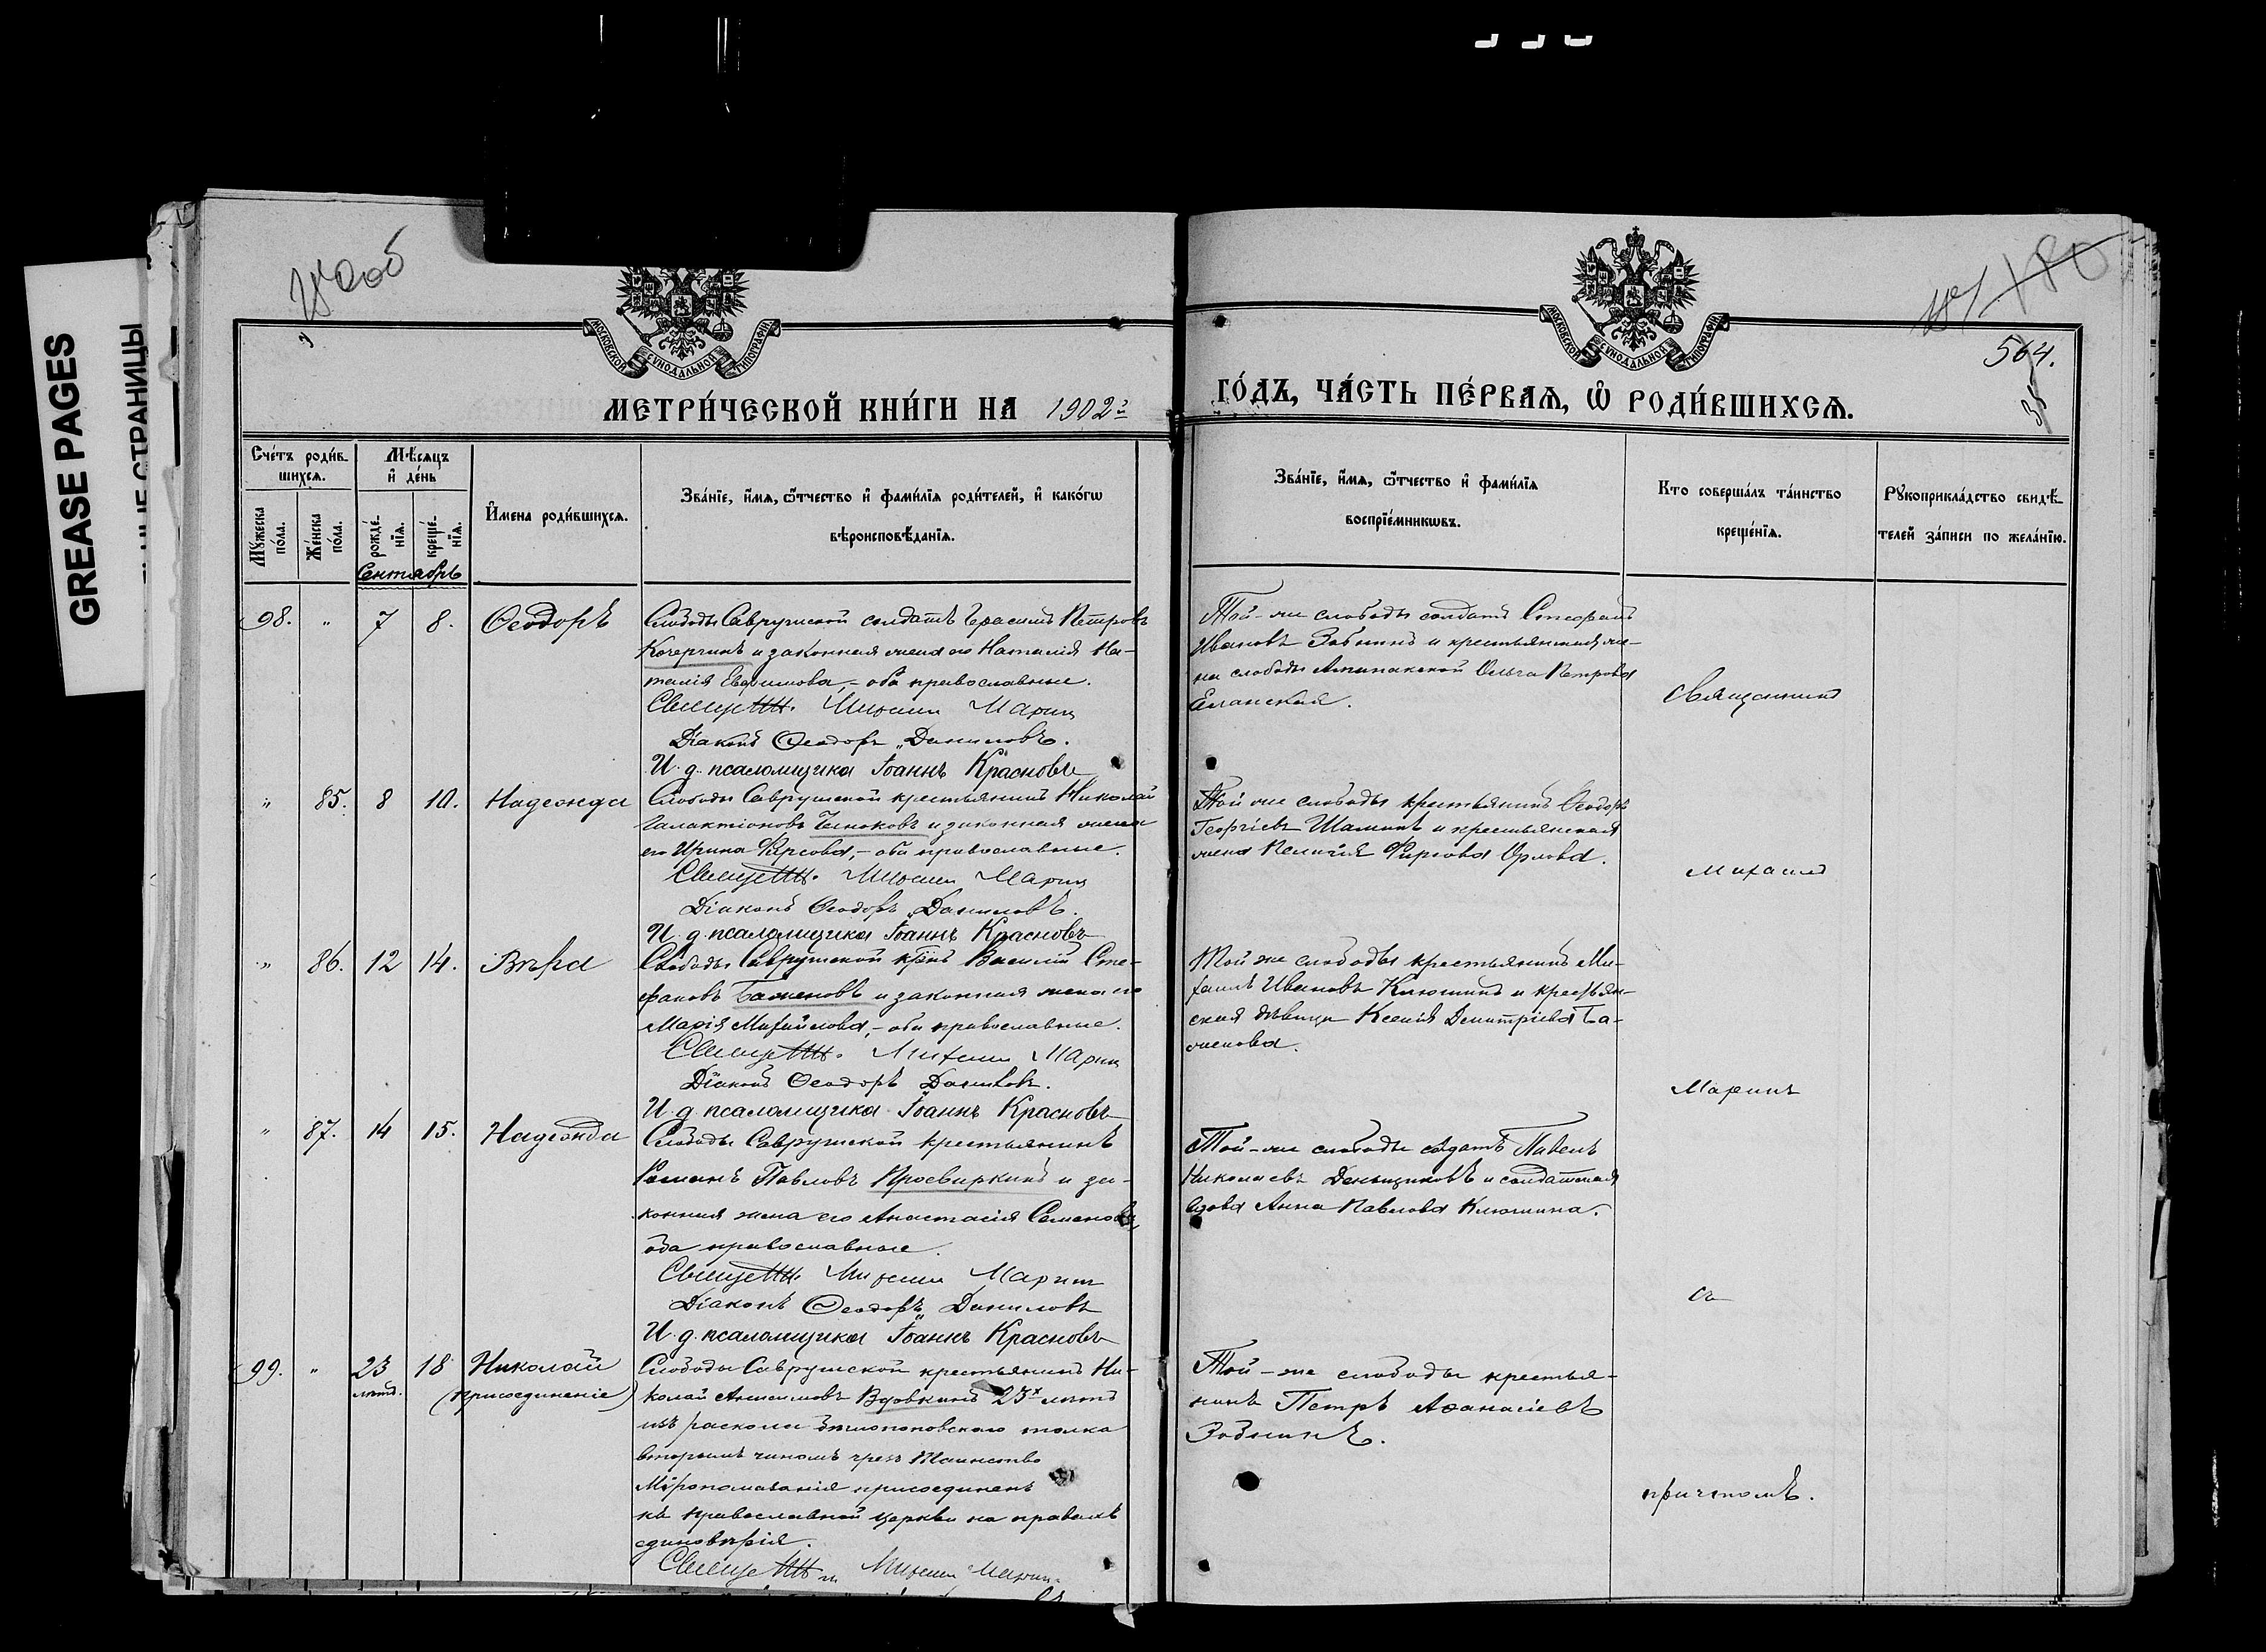 GREASE PAGES
СТРАНИЦЫ
564.
МОСКОВСКОЙ СѴНОДАЛЬНОЙ ТИПОГРАФІИ
МОСКОВСКОЙ СѴНОДАЛЬНОЙ ТИПОГРАФІИ
МЕТРИ́ЧЕСКОЙ КНИ́ГИ НА 1902й
ГО́ДЪ, ЧА́СТЬ ПЕ́РВАѦ, Ѽ РОДИ́ВШИХСѦ.
Сче́тъ роди́вшихсѧ.
Мѣ́сяцъ и҆ де́нь
Мꙋ́жеска по́ла.
Же́нска по́ла.
рожде́нїѧ.
креще́нїѧ.
И҆мена роди́вшихсѧ.
Зва́нїе, и҆́мѧ, ѻ҆́тчество и҆ фамі́лїѧ роди́телей, и҆ како́гѡ
вѣроисповѣ́данїѧ.
Зва́нїе, и҆́мѧ, ѻ҆́тчество и҆ фамі́лїѧ
воспрїе́мникѡвъ.
Кто соверша́лъ та́инство
креще́нїѧ.
Рꙋкоприкла́дство свидѣ́
телей за́писи по жела́нїю.
Сентябрь
98. " 7 8. Ѳеодоръ
Слободы Саврушской солдатъ Герасимъ Петровъ
Кочергинъ и законная жена его Наталія На-
талія Евфимова, – оба православные.
Священ. Михаилъ Маринъ
Діаконъ Ѳеодоръ Даниловъ.
И. д. псаломщика Іоаннъ Красновъ
Той-же слободы солдатъ Стефанъ
Ивановъ Зобнинъ и крестьянская же-
на слободы Ольга Петрова
священникъ
" 85. 8 10. Надежда
Слободы Саврушской крестьянинъ Николай
Галактіоновъ Чесноковъ и законная жена
его Ирина Фирсова, – оба православные.
Священ. Михаилъ Маринъ
Діаконъ Ѳеодоръ Даниловъ.
И. д. псаломщика Іоаннъ Красновъ
Той же слободы крестьянинъ Ѳеодоръ
Георгіевъ Шаминъ и крестьянская
жена Пелагія Фирсова Орлова.
Михаилъ
" 86. 12 14. Вѣра
Слободы Саврушской кр-нъ Василій Сте-
фановъ Баженовъ и законная жена его
Марія Михайлова, – оба православные.
Священ. Михаилъ Маринъ
Діаконъ Ѳеодоръ Даниловъ.
И. д. псаломщика Іоаннъ Красновъ
Той же слободы крестьянинъ Ми-
хаилъ Ивановъ Клюшинъ и крестьян-
ская дѣвица Ксенія Димитріева Ба-
женова.
Маринъ
" 87. 14 15. Надежда
Слободы Саврушской крестьянинъ
Романъ Павловъ Просвиркинъ и за-
конная жена его Анастасія Семенова
оба православные.
Священ. Михаилъ Маринъ
Діаконъ Ѳеодоръ Даниловъ
И. д. псаломщика Іоаннъ Красновъ
Той-же слободы солдатъ Павелъ
Николаевъ Деньщиковъ и солдатская
вдова Анна Павлова Клюшина.
съ
99. " 23 лѣтъ. 18 Николай
(присоединеніе)
Слободы Саврушской крестьянинъ Ни-
колай Вдовкинъ 23х лѣтъ
изъ раскола безпоповскаго толка
вторымъ чиномъ чрезъ Таинство
Мѵропомазанія присоединенъ
къ православной церкви на правахъ
единовѣрія.
Священ. Михаилъ Маринъ
Той-же слободы крестья-
нинъ Петръ Аѳанасіевъ
Зобнинъ.
причтомъ.